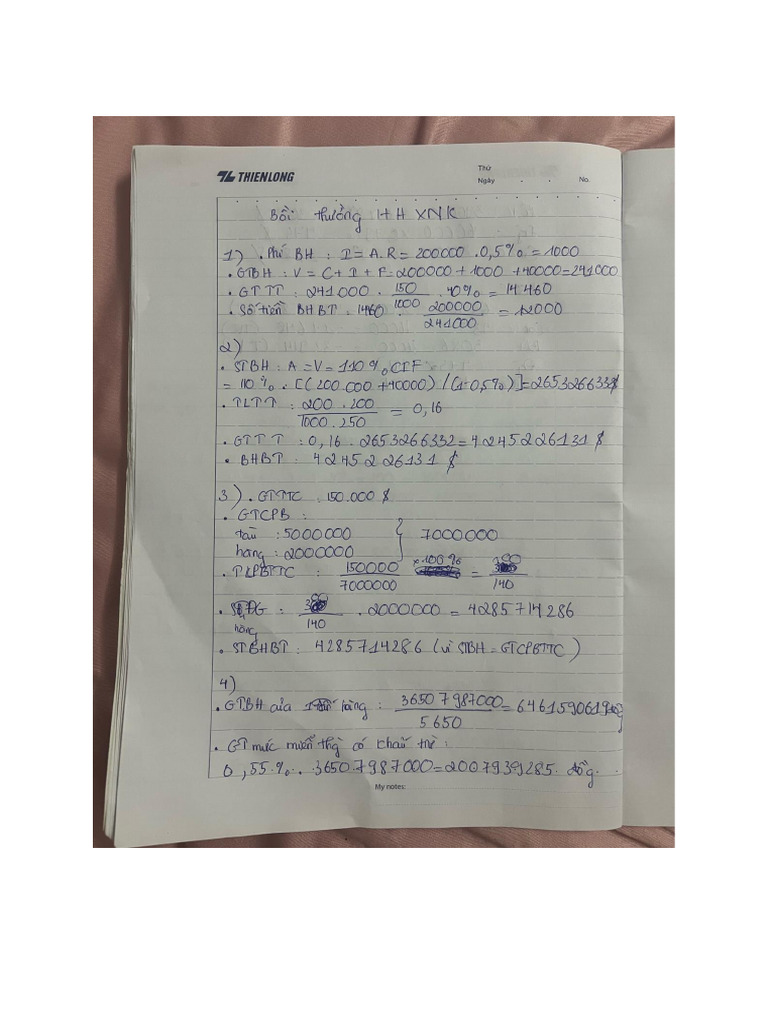 THIENLONG
Thứ
Ngày
No.
Bồi thường HH XNK
1) . Phí BH : I = A.R = 200000 . 0,5% = 1000
. GTBH : V = C + I + F = 200000 + 1000 + 40000 = 241000
. GTTT : 241000 . 150/1000 . 40% = 14.460
. Số tiền BHBT : 1460 . 200000/241000 = 12000
2)
. STBH : A = V = 110% CIF
= 110% . [(200.000 + 40000) / (1-0,5%)] = 265326633$
. TLTT : 200 . 200/1000 . 250 = 0,16
. GTTT : 0,16 . 2653266332 = 4245226131 $
. BHBT : 4245226131 $
3) . GTTTC : 150.000 $
. GTCPB :
tàu : 5000000 } 7000000
hàng : 2000000
. TLPBTTC : 150000/7000000 x 100% = 300/140
. SĐG hàng : 300/140 . 2000000 = 4285714286
. STBHBT : 4285714286 (vì STBH = GTCPBTTC)
4)
. GTBH của 1 hàng : 36507987000/5650 = 6461590619
. GT mức miễn thg có khấu trừ :
0,55% . 36507987000 = 2007939285 đồg
My notes: